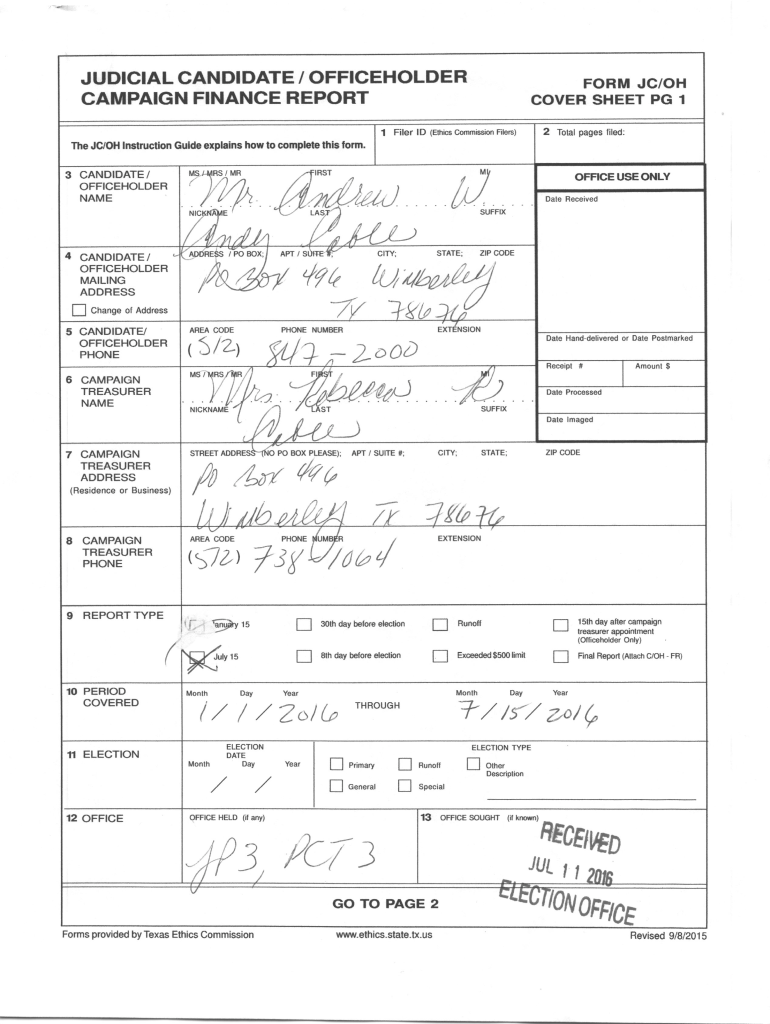 JUDICIAL CANDIDATE / OFFICEHOLDER
CAMPAIGN FINANCE REPORT
FORM JC/OH
COVER SHEET PG 1
The JC/OH Instruction Guide explains how to complete this form.
1 Filer ID (Ethics Commission Filers)
2 Total pages filed:
3 CANDIDATE /
OFFICEHOLDER
NAME
MS / MRS / MR FIRST MI
Mr. Andrew W.
NICKNAME LAST SUFFIX
Andy Cable
OFFICE USE ONLY
Date Received
4 CANDIDATE /
OFFICEHOLDER
MAILING
ADDRESS
Change of Address
ADDRESS / PO BOX; APT / SUITE #; CITY; STATE; ZIP CODE
PO Box 496 Wimberley
TX 78676
5 CANDIDATE/
OFFICEHOLDER
PHONE
AREA CODE PHONE NUMBER EXTENSION
(512) 847-2000
Date Hand-delivered or Date Postmarked
Receipt # Amount $
Date Processed
Date Imaged
6 CAMPAIGN
TREASURER
NAME
MS / MRS / MR FIRST MI
Mrs. Rebecca R
NICKNAME LAST SUFFIX
Cable
7 CAMPAIGN
TREASURER
ADDRESS
(Residence or Business)
STREET ADDRESS (NO PO BOX PLEASE); APT / SUITE #; CITY; STATE; ZIP CODE
PO Box 496
Wimberley TX 78676
8 CAMPAIGN
TREASURER
PHONE
AREA CODE PHONE NUMBER EXTENSION
(512) 738-1064
9 REPORT TYPE
January 15
30th day before election
Runoff
15th day after campaign
treasurer appointment
(Officeholder Only)
July 15
8th day before election
Exceeded $500 limit
Final Report (Attach C/OH - FR)
10 PERIOD
COVERED
Month Day Year
1/1/2016
THROUGH
Month Day Year
7/15/2016
11 ELECTION
ELECTION
DATE
Month Day Year
/ /
ELECTION TYPE
Primary
Runoff
Other
Description
General
Special
12 OFFICE
OFFICE HELD (if any)
JP3, PCT 3
13 OFFICE SOUGHT (if known)
RECEIVED
JUL 11 2016
ELECTION OFFICE
GO TO PAGE 2
Forms provided by Texas Ethics Commission
www.ethics.state.tx.us
Revised 9/8/2015